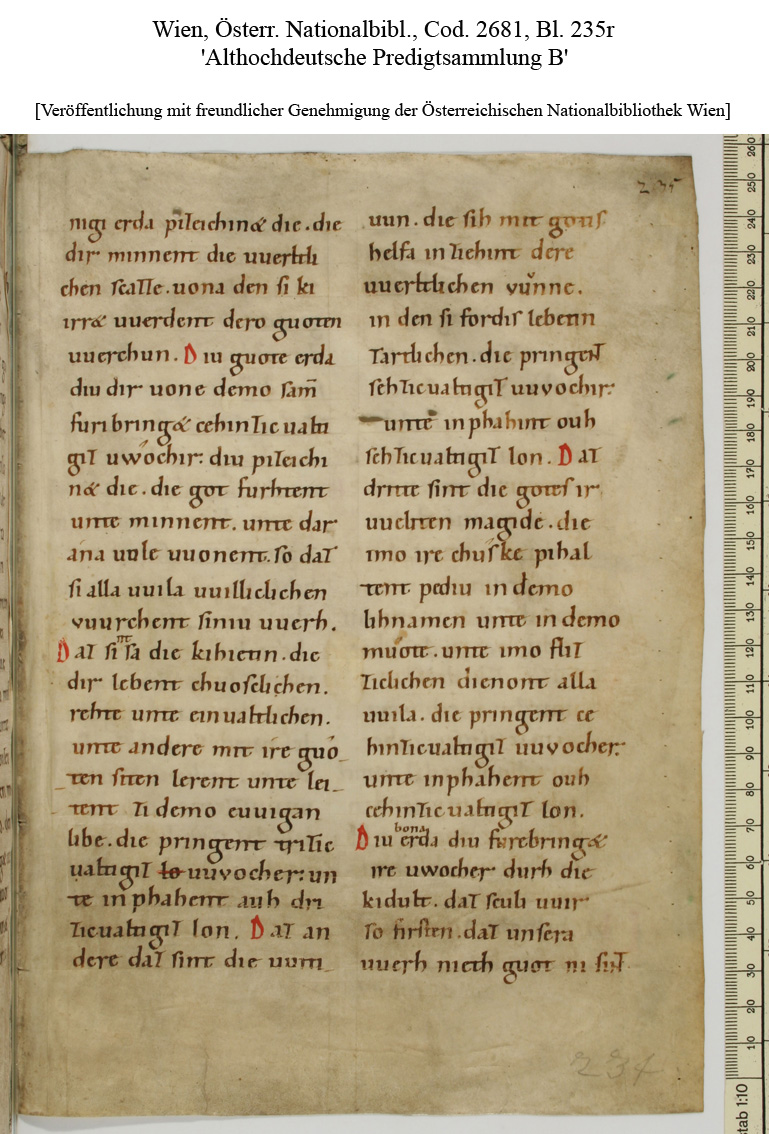 Wien, Österr. Nationalbibl., Cod. 2681, Bl. 235r
'Althochdeutsche Predigtsammlung B'
[Veröffentlichung mit freundlicher Genehmigung der Österreichischen Nationalbibliothek Wien]
235
nigi erda pizeichin& die . die
dir minnent die uuerltli
chen scazze . uona den si ki
irr& uuerdent dero guoten
uuerchun . Diu guote erda
diu dir uone demo sam̄
furi bring& cehinzicualti
giz uwóchir: diu pizeichi
n& die . die got furhtent
unte minnent . unte dar
ana uole uuonent . so daz
si alla uuila uuilliclichen
vuurchent siniu uuerh .
Daz sintsa die kihienn . die
dir lebent chuosclichen .
rehte unte einualtlichen .
unte andere mit ire guó
ten siten lerent unte lei
tent zi demo euuigan
libe . die pringent trizic
ualtigiz to uuvocher: un
te inphahent auh dri
zicualtigiz lon . Daz an
dere daz sint die uuitt
uun . die sih mit gotis
helfa inziehint dere
uuerltlichen vúnne .
in den si fordis lebetin
zartlichen . die pringent
sehzicualtigiz uuvochir:
unte inphahint ouh
sehzicualtigiz lon . Daz
dritte sint die gotes ir
uuelten magide . die
imo ire chuske pihal
tent . pediu in demo
lihnamen unte in demo
muote . unte imo fliz
ziclichen dienont alla
uuila . die pringent ce
hinzicualtigiz uuvocher:
unte inphahent ouh
cehinzicualtigiz lon .
Diu bona erda diu furebring&
ire uwocher durh die
kidult . daz sculi uuir
so firsten . daz unsera
uuerh nieth guot ni sint
234
260
250
240
230
220
210
200
190
180
170
160
150
140
130
120
110
100
90
80
70
60
50
40
30
20
10
stab 1:10